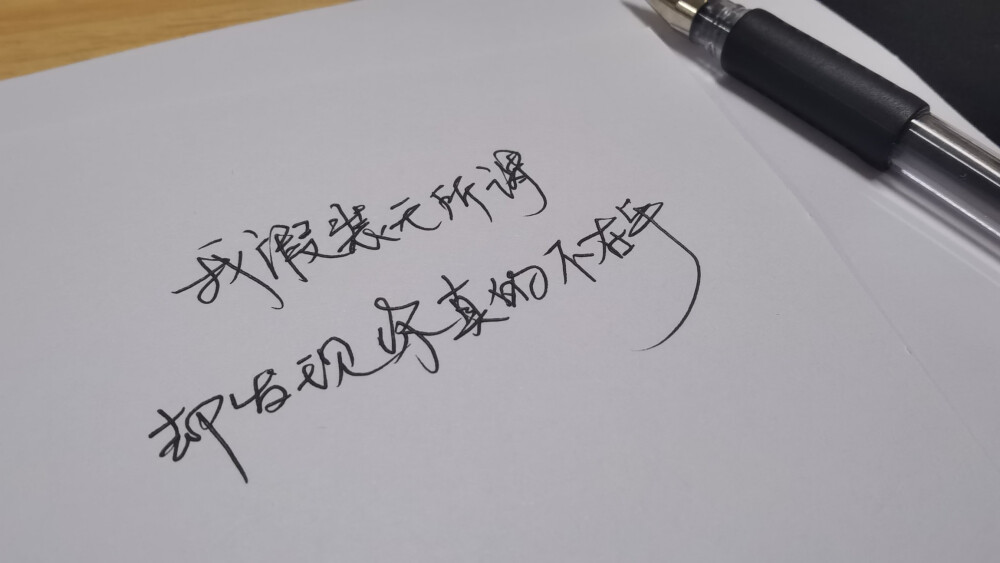 我假装无所谓
却发现你真的不在乎